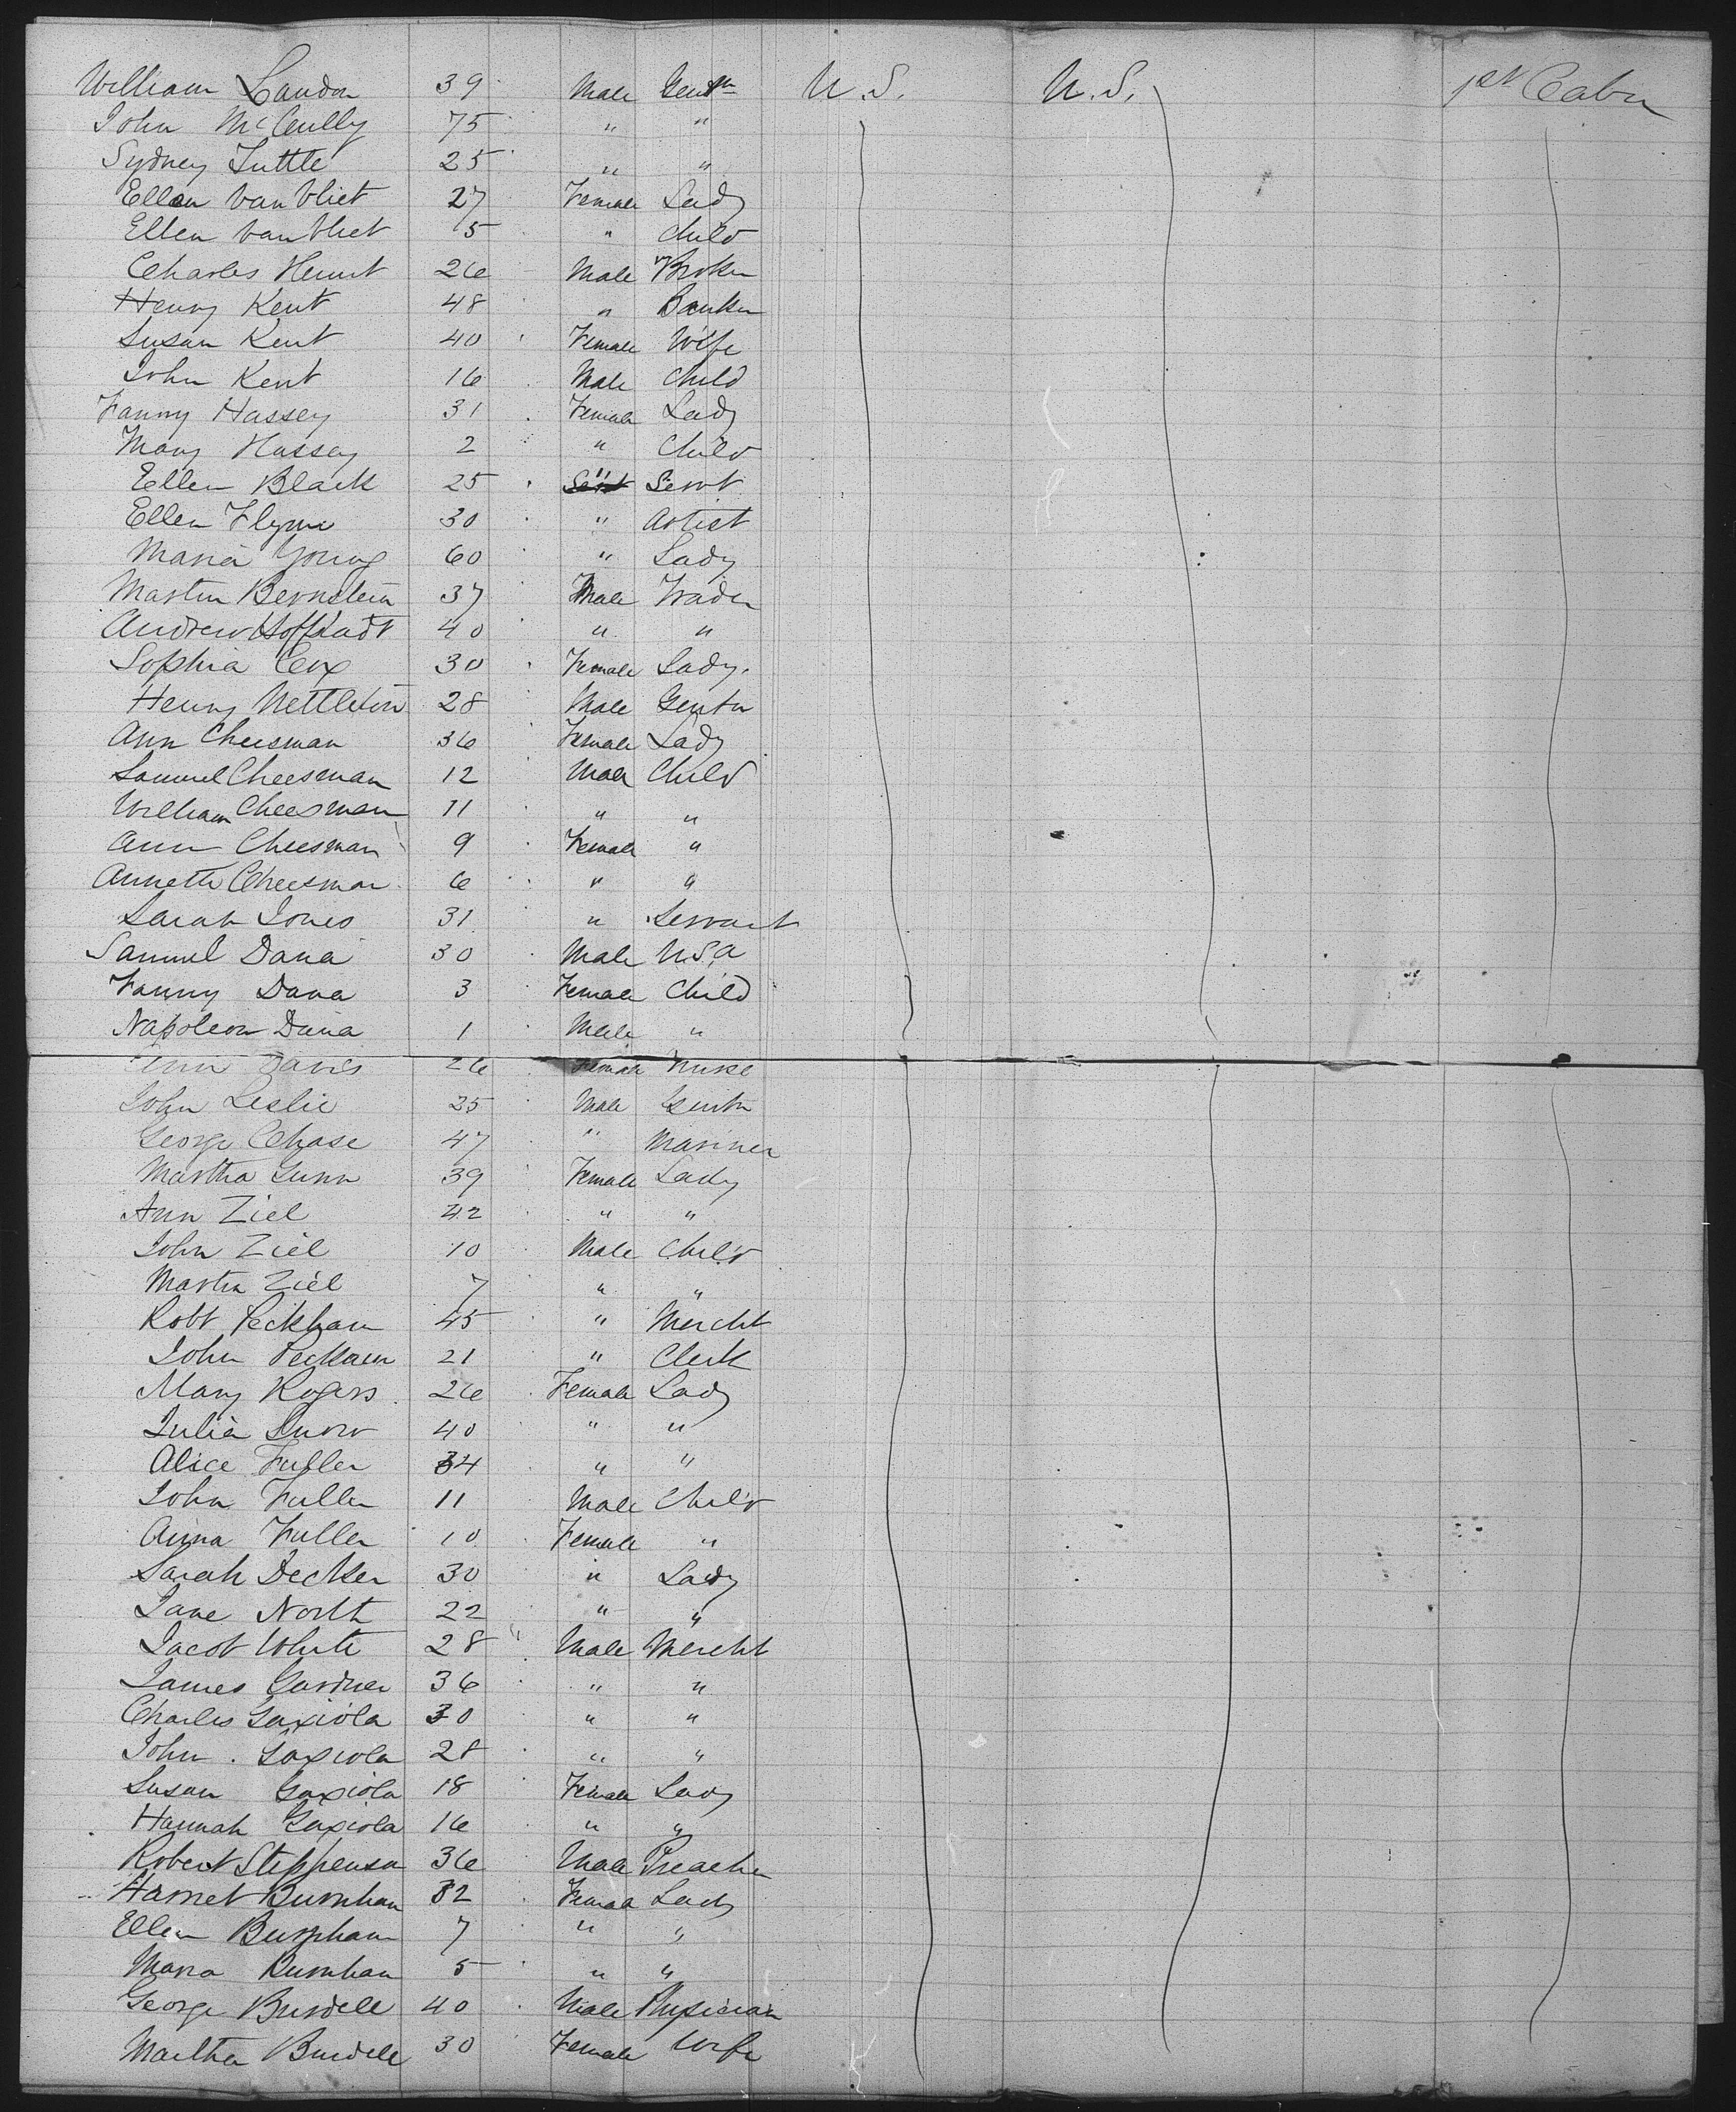 William Landon 39 Male Gentn U.S. U.S. 1st Cabn
John McCully 75 " "
Sydney Tuttle 25 " "
Ellen Van Vliet 27 Female Lady
Ellen Van Vliet 5 " Child
Charles Hunt 26 Male Broker
Henry Kent 48 " Banker
Susan Kent 40 Female Wife
John Kent 16 Male Child
Fanny Hassey 31 Female Lady
Mary Hassey 2 " Child
Ellen Black 25 " Servt
Ellen Flynn 30 " Artist
Maria Young 60 " Lady
Martin Bernstein 37 Male Trader
Andrew Hoffstadt 40 " "
Sophia Cox 30 Female Lady.
Henry Nettleton 28 Male Gentn
Ann Cheesman 36 Female Lady
Samuel Cheesman 12 Male Child
William Cheesman 11 " "
Ann Cheesman 9 Female "
Annette Cheesman 6 " "
Sarah Jones 31 " Servant
Samuel Dana 30 Male U.S.A
Fanny Dana 3 Female Child
Napoleon Dana 1 Male "
Ann Davis 26 Female Nurse
John Leslie 25 Male Gentn
George Chase 47 " Mariner
Martha Gunn 39 Female Lady
Ann Ziel 42 " "
John Ziel 10 Male Child
Martin Ziel 7 " "
Robt Peckham 45 " Mercht
John Peckham 21 " Clerk
Mary Rogers 26 Female Lady
Julia Snow 40 " "
Alice Fuller 34 " "
John Fuller 11 Male Child
Anna Fuller 10 Female "
Sarah Decker 30 " Lady
Jane North 22 " "
Jacob White 28 Male Mercht
James Gardner 36 " "
Charles Gaxiola 30 " "
John Gaxiola 28 " "
Susan Gaxiola 18 Female Lady
Hannah Gaxiola 16 " "
Robert Stephenson 36 Male Preacher
Harriet Burnham 32 Female Lady
Ellen Burnham 7 " "
Maria Burnham 5 " "
George Burdell 40 Male Physician
Martha Burdell 30 Female Wife